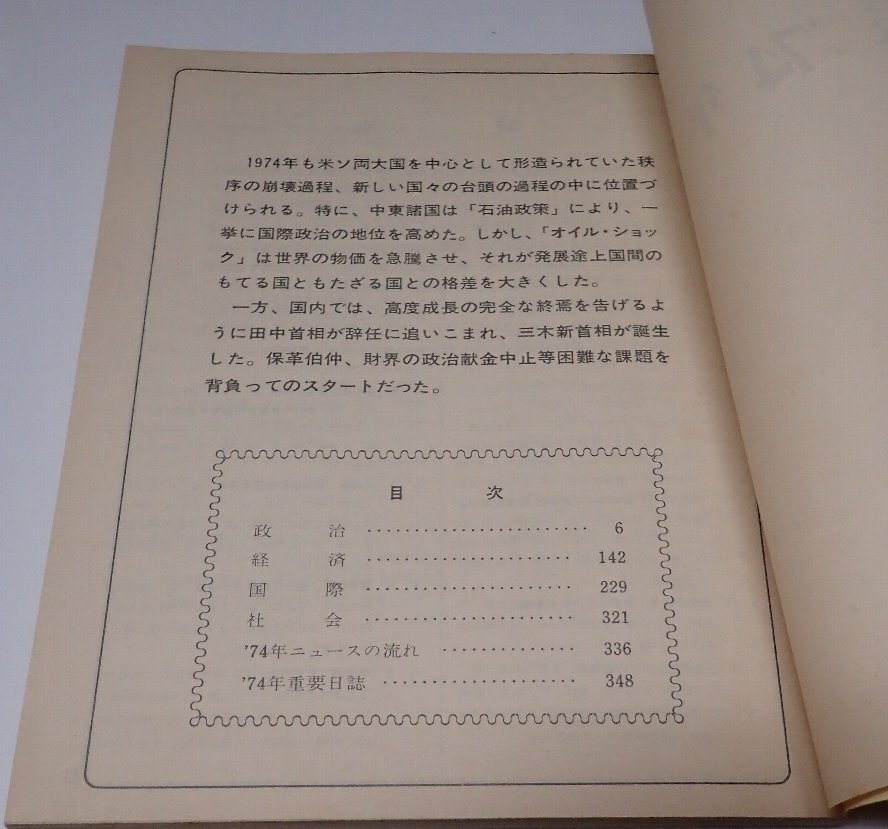 1974年も米ソ両大国を中心として形造られていた秩
序の崩壊過程、新しい国々の台頭の過程の中に位置づ
けられる。特に、中東諸国は「石油政策」により、一
挙に国際政治の地位を高めた。しかし、「オイル・ショッ
ク」は世界の物価を急騰させ、それが発展途上国間の
もてる国ともたざる国との格差を大きくした。
一方、国内では、高度成長の完全な終焉を告げるよ
うに田中首相が辞任に追いこまれ、三木新首相が誕生
した。保革伯仲、財界の政治献金中止等困難な課題を
背負ってのスタートだった。
目 次
政 治 ························ 6
経 済 ······················ 142
国 際 ······················ 229
社 会 ······················ 321
'74年ニュースの流れ ·············· 336
'74年重要日誌 ···················· 348